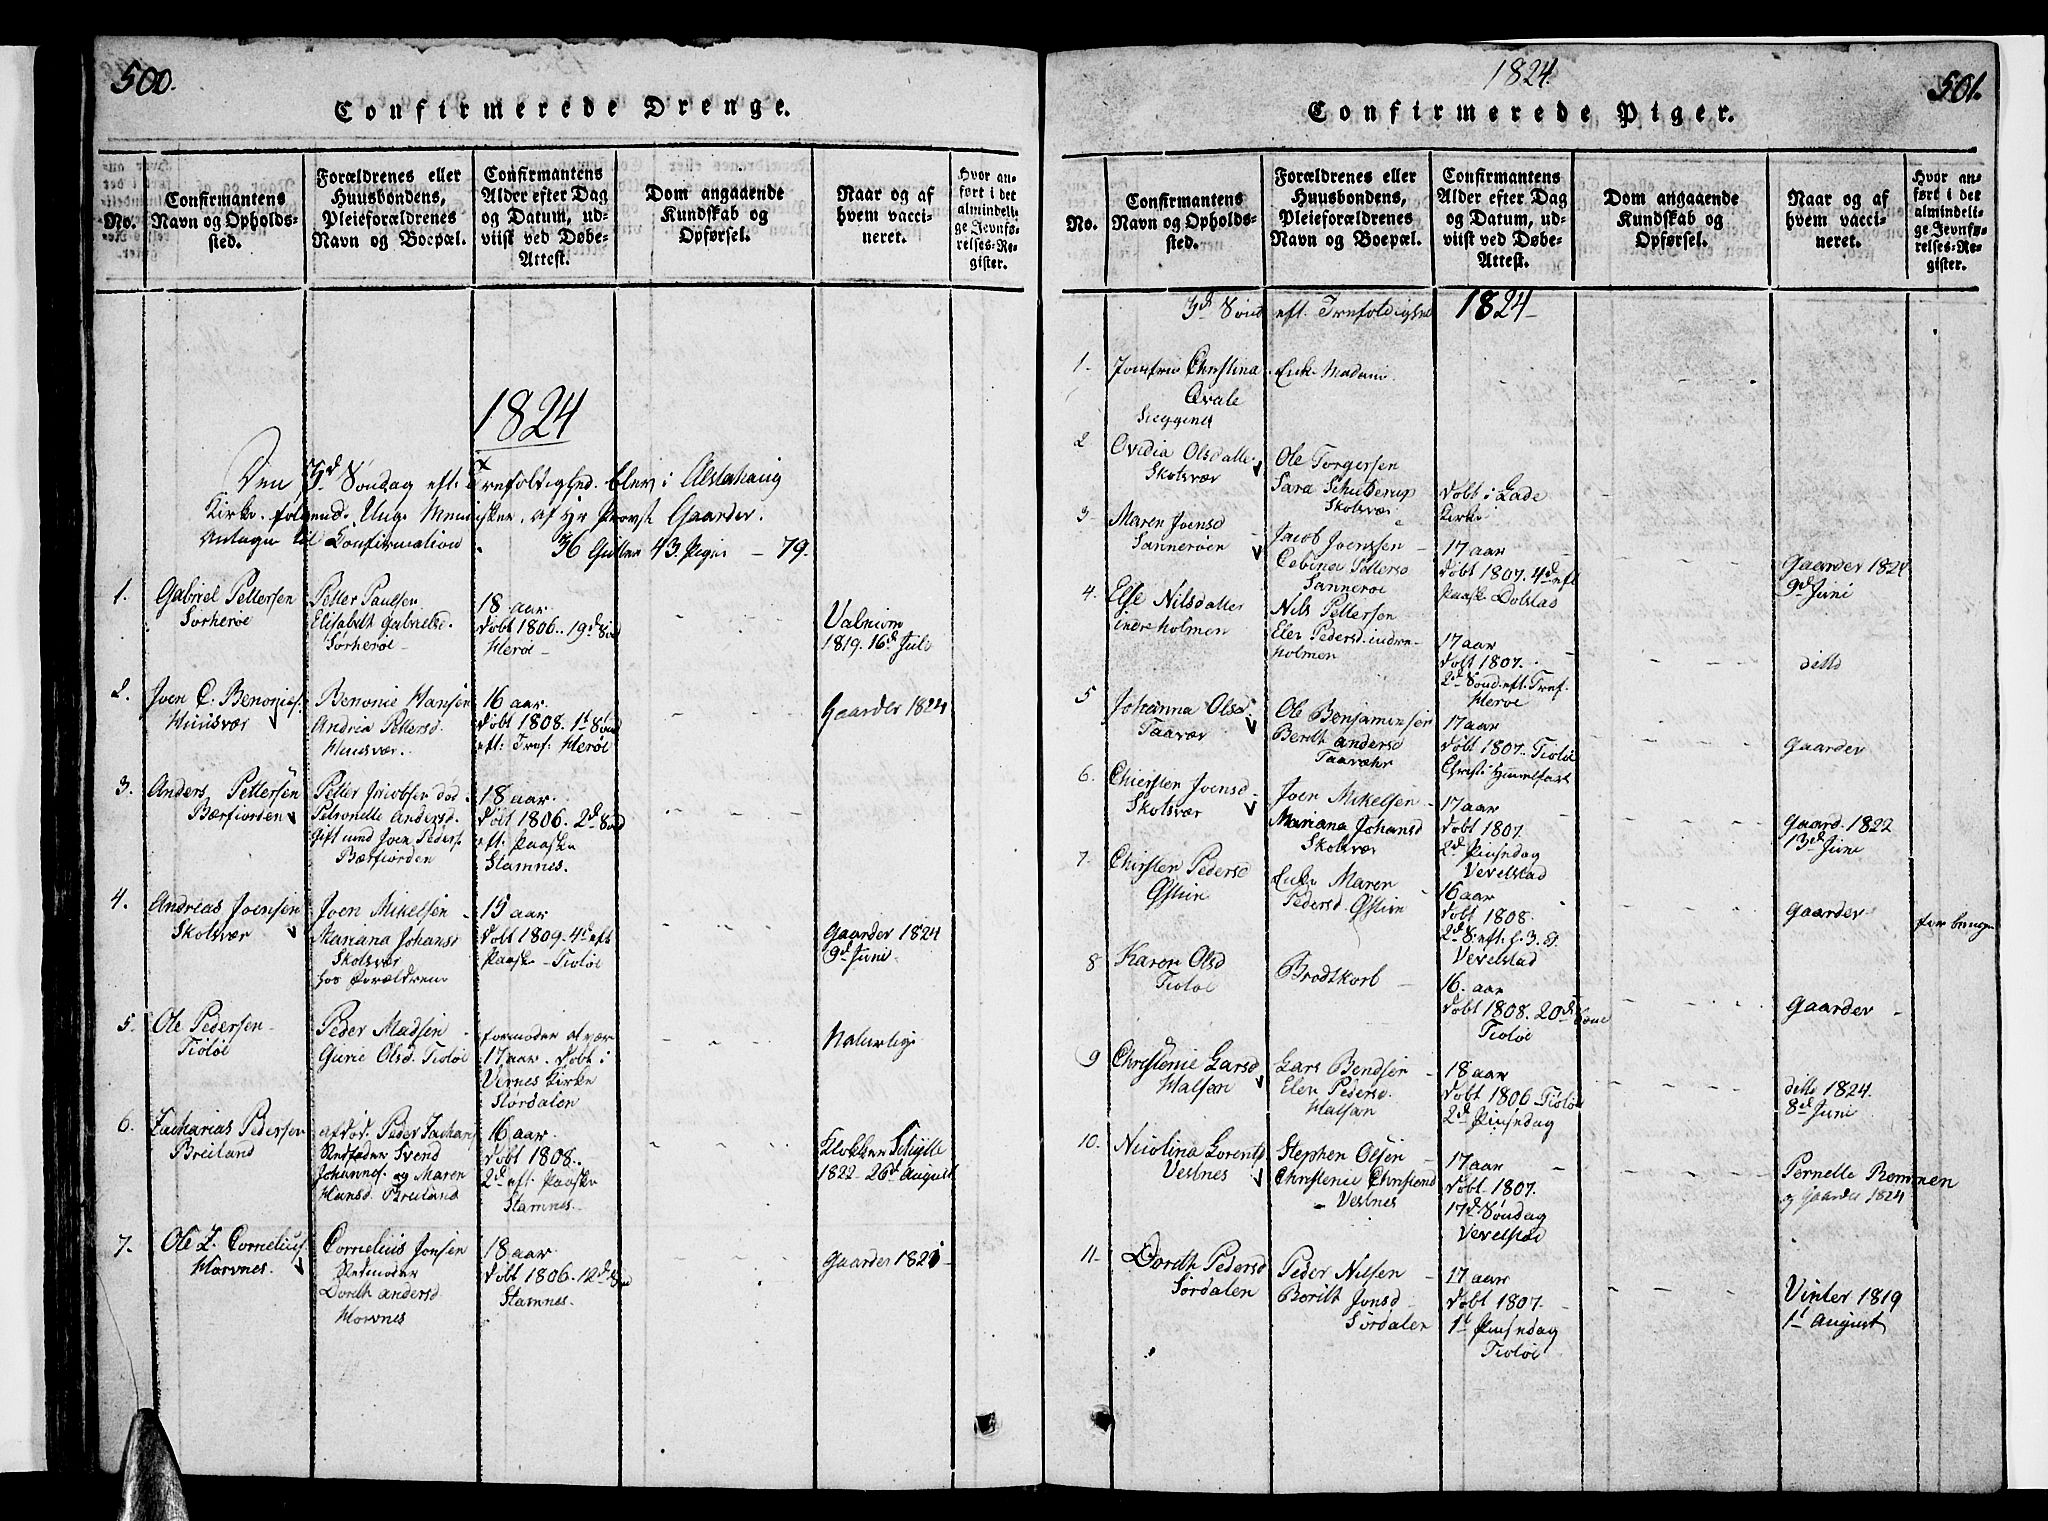 500.
Confirmerede Drenge.
No.
Confirmantens
Navn og Opholds-
sted.
Forældrenes eller
Huusbondens,
Pleieforældrenes
Navn og Boepæl.
Confirmantens
Alder efter Dag
og Datum, ud-
viist ved Døbe-
Attest.
Dom angaaende
Kundskab og
Opførsel.
Naar og af
hvem vacci-
neret.
Hvor an-
ført i det
almindeli-
ge Jevnfø-
relses-Re-
gister.
1824
Den 3d Søndag eft. Trefoldighed. blev i Alstahaug
Kirke. følgende Unge Mennesker, af Hr Provst Gaarder.
Antagne til Confirmation
36 Gutter 43 Piger - 79.
1.
Gabriel Pettersen
Sørherøe
Petter Paulsen
Elisabeth Gabrielsd.
Sørherøe
18 aar
døbt 1806. 19d Sønd
Herøe
1819. 16d Juli
2.
Joen C. Benonies.
Husvær
Benonie Hansen
Andrea Pettersd.
Husvær.
16 aar
døbt 1808. 1t Sønd
eft: Tref: Herøe
Gaarder 1824
3.
Anders Pettersen
Bærfiorden
Petter Jacobsen død
Petronelle Andersd.
Gift med Joen Peders.
Bærfiorden
18 aar.
døbt 1806. 2d Sønd
eft. Paaske
Stamnes.
4.
Andreas Joensen
Skolsvær
Joen Mikelsen
Mariana Johansd
Skolsvær
hos Forældrene
15 aar
døbt 1809. 4d eft
Paaske - Tiøtøe
Gaarder 1824
9d Juni
5.
Ole Pedersen
Tiøtøe
Peder Madsen
Gurie Olsd. Tiøtøe
formoder at være
17 aar. døbt i
Vernes Kirke
Størdalen
Naturlige
6.
Zacharias Pedersen
Breiland
afdød. Peder Zachari
Stedfader Svend
Johannes. og Maren
Hansd. Breiland
16 aar.
døbt 1808.
2d eft. Paaske
Stamnes.
Klokker Schytte
1822. 26d August
7.
Ole Z. Cornelius.
Horvnes.
Cornelius Jonsen
Stedmoder
Dordth Andersd
Horvnes
18 aar
døbt 1806. 12d Sønd
Stamnes.
Gaarder 1821
1824.
501.
Confirmerede Piger.
No.
Confirmantens
Navn og Opholds-
sted.
Forældrenes eller
Huusbondens,
Pleieforældrenes
Navn og Boepæl.
Confirmantens
Alder efter Dag
og Datum, ud-
viist ved Døbe-
Attest.
Dom angaaende
Kundskab og
Opførsel.
Naar og af
hvem vacci-
neret.
Hvor an-
ført i det
almindeli-
ge Jevnfø-
relses-Re-
gister.
3d Sønd eft. Trefoldighed 1824
1.
Jomfrue Christina
Qvale
Enke Madame
2
Ovidia Olsdatte.
Skolsvær
Ole Torgersen
Sara Schielderup
Skolsvær
døbt i Lade
Kirke
3
Maren Joensd
Sannerøen
Jacob Joenssen
Pettersd
Sannerøe
17 aar
døbt 1807. 4d eft
Paaske Dolstad
Gaarder 1824
9d Juni
4.
Else Nilsdatter
indreholmen
Nils Pettersen
Elen Pedersd. indre-
holmen
17 aar
døbt 1807.
2d Sønd. eft. Tref.
Herøe
ditto
5
Johanna Olsd.
Taavær
Ole Benjaminsen
Berith Andersd
Taavæhr
17 aar
døbt 1807. Tiøtøe
Christi Himmelfart
Gaarder
6.
Chiersten Joensd
Skolsvær
Joen Mikelsen
Mariana Johansd
Skolsvær
17 aar
døbt 1807.
2d Pinsedag
Vevelstad
Gaard. 1822
13d Juni
7.
Chirsten Pedersd
Østvin
Enke Maren
Pedersd. Østvin
16 aar
døbt 1808.
2d S. eft. h. 3. K.
Vevelstad
Gaarder
8
Karen Olsd
Tiøtøe
Brodtkorb
16. aar
døbt 1808. 20d Sønd
Tiøtøe
Gaarder
9
Christenie Larsd
Halsan
Lars Bendsen
Elen Pedersd.
Halsan
18 aar
døbt 1806 Tiøtøe
2d Pinsedag
ditto 1824.
8d Juni
10.
Nicolina Lorents
Vestnes
Stephen Olsen
Christenie Christend
Vestnes
17 aar
døbt 1807.
17d Søndag
Vevelstad
Pernelle Rommen
og Gaarder 1824
11.
Dordth Pedersd
Sørdalen
Peder Nilsen
Borith Jonsd
Sørdalen
17 aar
døbt 1807.
1t Pinsedag
Tiøtøe
Vinter 1819
1t August